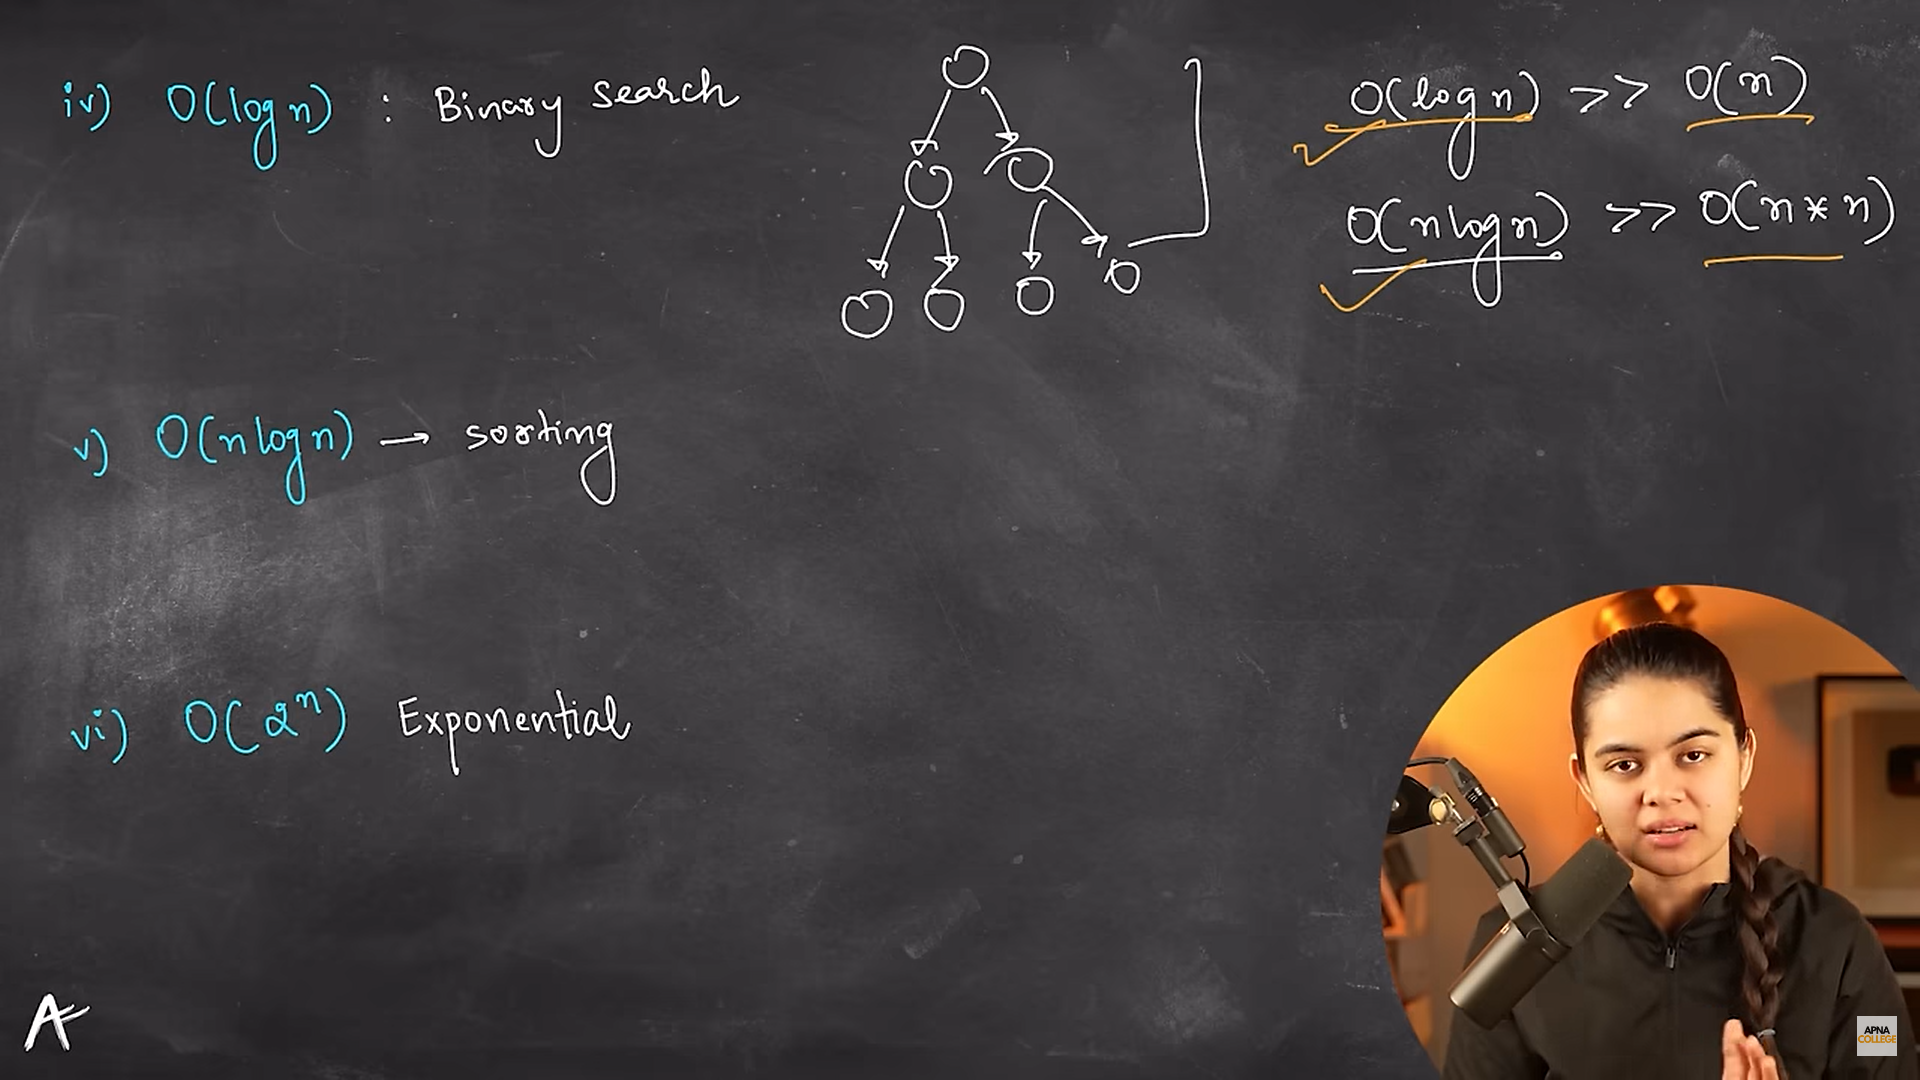 iv) O(log n) : Binary search
O(log n) >> O(n)
O(n log n) >> O(n * n)
v) O(n log n) → sorting
vi) O(2ⁿ) Exponential
A
APNA
COLLEGE